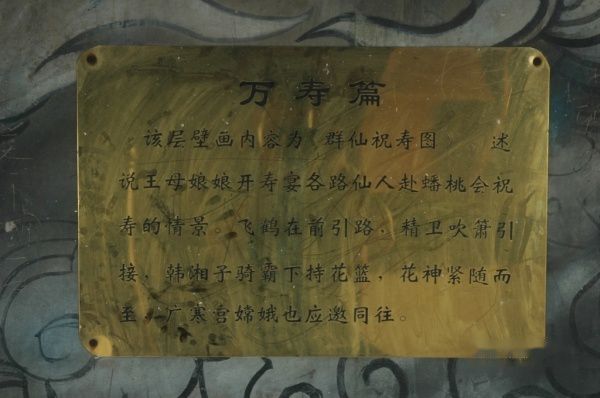 万寿篇
该层壁画内容为《群仙祝寿图》 述
说王母娘娘开寿宴各路仙人赴蟠桃会祝
寿的情景。飞鹤在前引路，精卫吹箫引
接，韩湘子骑霸下持花篮，花神紧随而
至，广寒宫嫦娥也应邀同往。